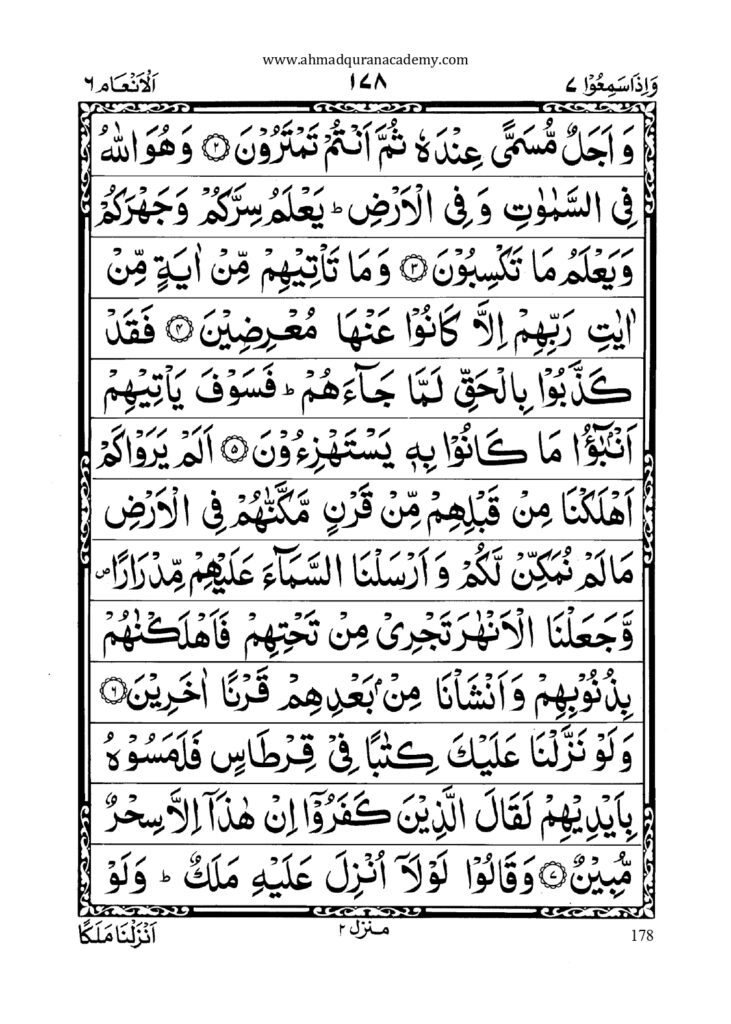 www.ahmadquranacademy.com
وَاِذَاسَمِعُوْا ٧ ١٧٨ اَلْاَنْعَام ٦
وَ اَجَلٌ مُّسَمًّى عِنْدَهٗ ثُمَّ اَنْتُمْ تَمْتَرُوْنَ ۝٢ وَهُوَ اللّٰهُ
فِى السَّمٰوٰتِ وَ فِى الْاَرْضِ ؕ يَعْلَمُ سِرَّكُمْ وَ جَهْرَكُمْ
وَيَعْلَمُ مَا تَكْسِبُوْنَ ۝٣ وَمَا تَاْتِيْهِمْ مِّنْ اٰيَةٍ مِّنْ
اٰيٰتِ رَبِّهِمْ اِلَّا كَانُوْا عَنْهَا مُعْرِضِيْنَ ۝٤ فَقَدْ
كَذَّبُوْا بِالْحَقِّ لَمَّا جَآءَهُمْ ؕ فَسَوْفَ يَاْتِيْهِمْ
اَنْۢبٰٓؤُا مَا كَانُوْا بِهٖ يَسْتَهْزِءُوْنَ ۝٥ اَلَمْ يَرَوْا كَمْ
اَهْلَكْنَا مِنْ قَبْلِهِمْ مِّنْ قَرْنٍ مَّكَّنّٰهُمْ فِى الْاَرْضِ
مَا لَمْ نُمَكِّنْ لَّكُمْ وَ اَرْسَلْنَا السَّمَآءَ عَلَيْهِمْ مِّدْرَارًا ۪
وَّجَعَلْنَا الْاَنْهٰرَ تَجْرِىْ مِنْ تَحْتِهِمْ فَاَهْلَكْنٰهُمْ
بِذُنُوْبِهِمْ وَ اَنْشَاْنَا مِنْۢ بَعْدِهِمْ قَرْنًا اٰخَرِيْنَ ۝٦
وَلَوْ نَزَّلْنَا عَلَيْكَ كِتٰبًا فِىْ قِرْطَاسٍ فَلَمَسُوْهُ
بِاَيْدِيْهِمْ لَقَالَ الَّذِيْنَ كَفَرُوْٓا اِنْ هٰذَآ اِلَّا سِحْرٌ
مُّبِيْنٌ ۝٧ وَقَالُوْا لَوْلَآ اُنْزِلَ عَلَيْهِ مَلَكٌ ؕ وَلَوْ
اَنْزَلْنَا مَلَكًا منزل ٢ 178